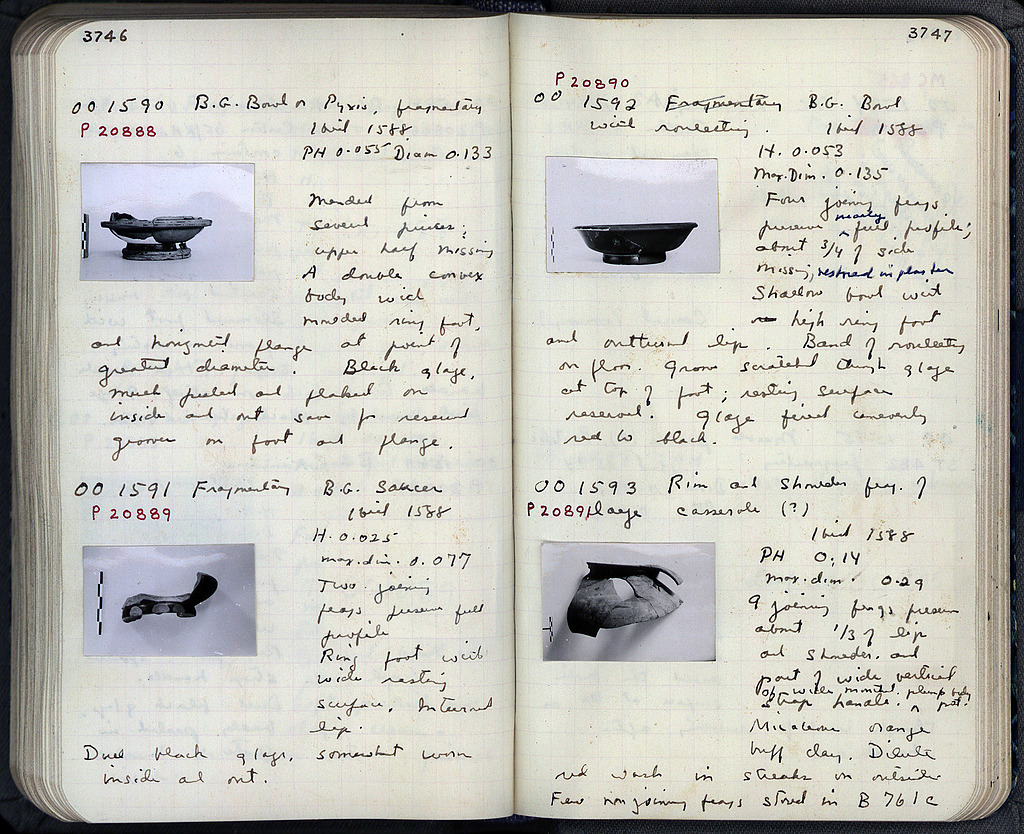 3746
OO 1590 B.G. Bowl or Pyxis, fragmentary
P 20888 Ibid 1588
PH 0.055 Diam 0.133
Mended from
several pieces;
upper half missing
A double convex
body with
moulded ring foot,
and horizontal flange at point of
greatest diameter. Black glaze,
much peeled and flaked on
inside and out save for reserved
groove on foot and flange.
OO 1591 Fragmentary B.G. Saucer
P 20889 Ibid 1588
H. 0.025
max. dim. 0.077
Two joining
frags preserve full
profile
Ring foot with
wide resting
surface. Inturned
lip.
Dull black glaze, somewhat worn
inside and out.
3747
P 20890
OO 1592 Fragmentary B.G. Bowl
with rouletting. Ibid 1588
H. 0.053
Max. Dim. 0.135
Four joining frags
preserve nearly full profile;
about 3/4 of side
missing, restored in plaster
Shallow bowl with
high ring foot
and outturned lip. Band of rouletting
on floor. Groove scratched through glaze
at top of foot; resting surface
reserved. Glaze fired unevenly
red to black.
OO 1593 Rim and Shoulder frag. of
P 20891 large casserole (?)
Ibid 1588
PH 0.14
max. dim. 0.29
9 joining frags preserve
about 1/3 of lip
and shoulder. and
part of wide vertical
strap handle. of wide mouthed, plump body pot.
Micaceous orange
buff clay. Dilute
red wash in streaks on outside
Few non joining frags stored in B 761c